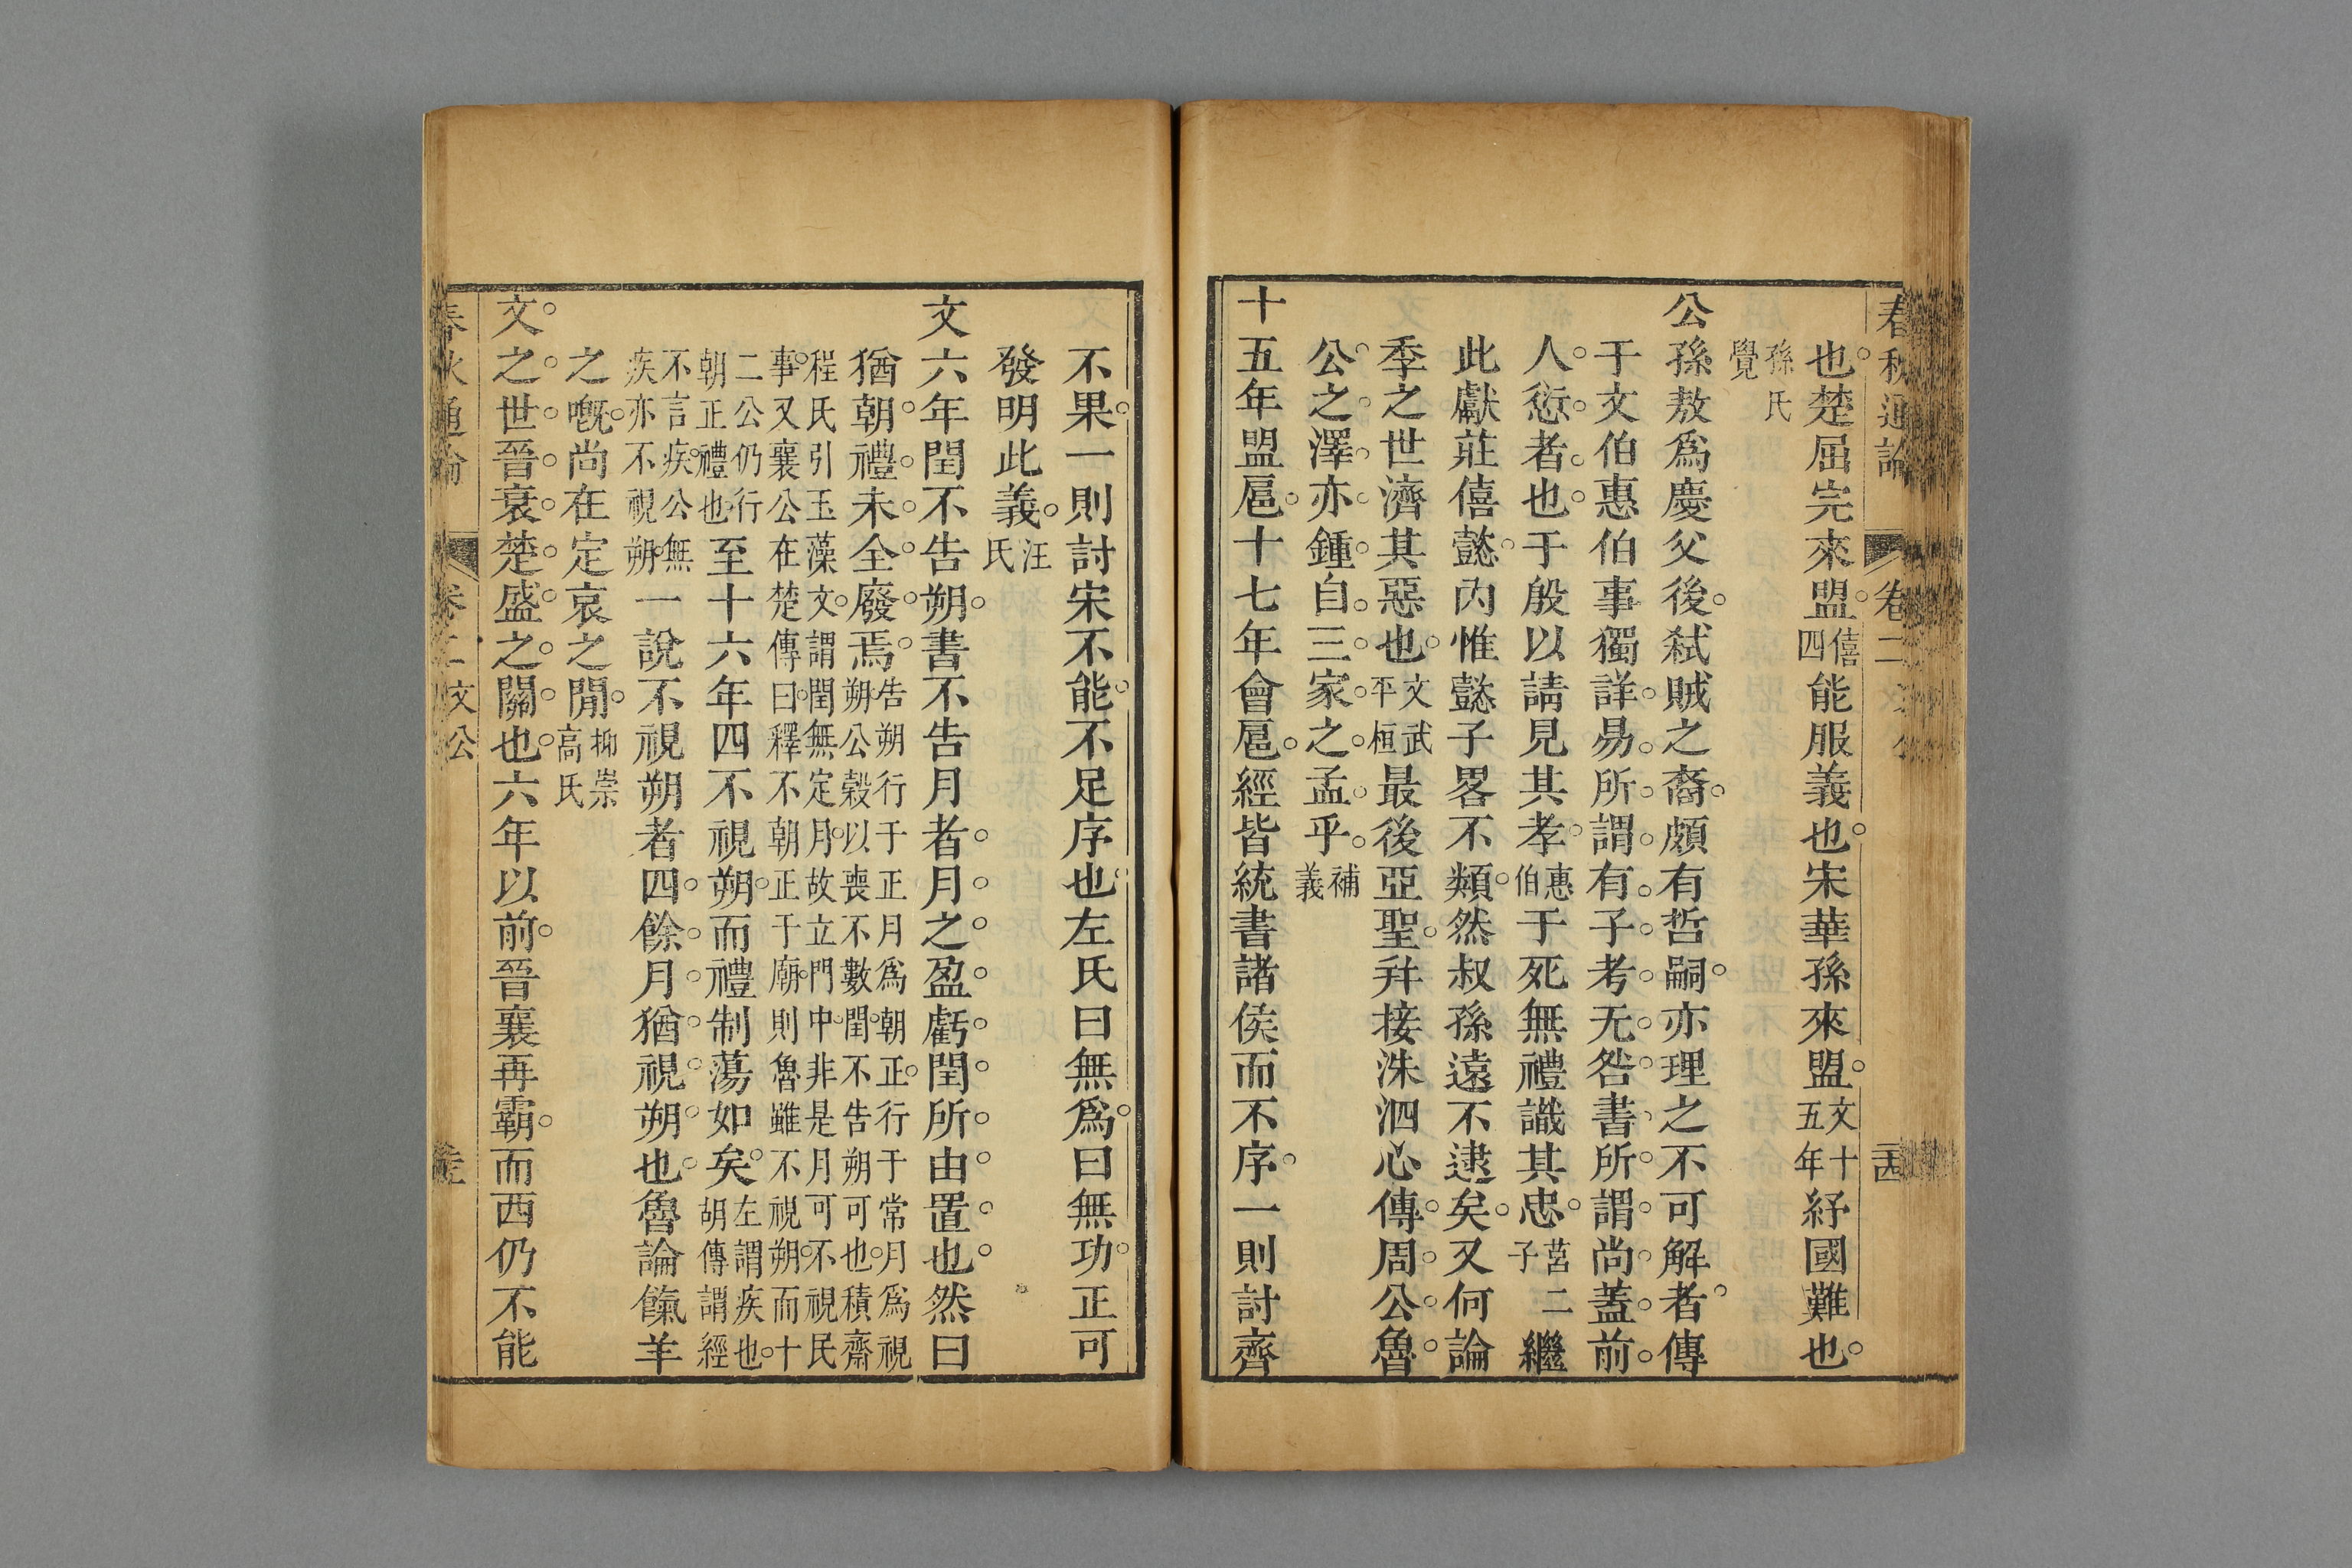 春秋通論 卷二 文公
也楚屈完來盟僖四能服義也宋華孫來盟文十五年紓國難也
孫氏覺
公孫敖爲慶父後弑賊之裔頗有哲嗣亦理之不可解者傳
于文伯惠伯事獨詳易所謂有子考无咎書所謂尚蓋前
人愆者也于殷以請見其孝惠伯于死無禮識其忠莒二子繼
此獻莊僖懿內惟懿子畧不類然叔孫遠不逮矣又何論
季之世濟其惡也文武平桓最後亞聖幷接洙泗心傳周公魯
公之澤亦鍾自三家之孟乎補義
十五年盟扈十七年會扈經皆統書諸侯而不序一則討齊
不果一則討宋不能不足序也左氏曰無爲曰無功正可
發明此義汪氏
文六年閏不告朔書不告月者月之盈虧閏所由置也然曰
猶朝禮未全廢焉告朔行于正月爲朝正行于常月爲視朔公穀以喪不數閏不告朔可也積齋
程氏引玉藻文謂閏無定月故立門中非是月可不視民事又襄公在楚傳曰釋不朝正于廟則魯雖不視朔而十
二公仍行朝正禮也至十六年四不視朔而禮制蕩如矣左謂疾也胡傳謂經
不言疾公無疾亦不視朔一說不視朔者四餘月猶視朔也魯論餼羊
之嘅尚在定哀之閒抑崇高氏
文之世晉衰楚盛之關也六年以前晉襄再霸而西仍不能
春秋通論 卷二 文公